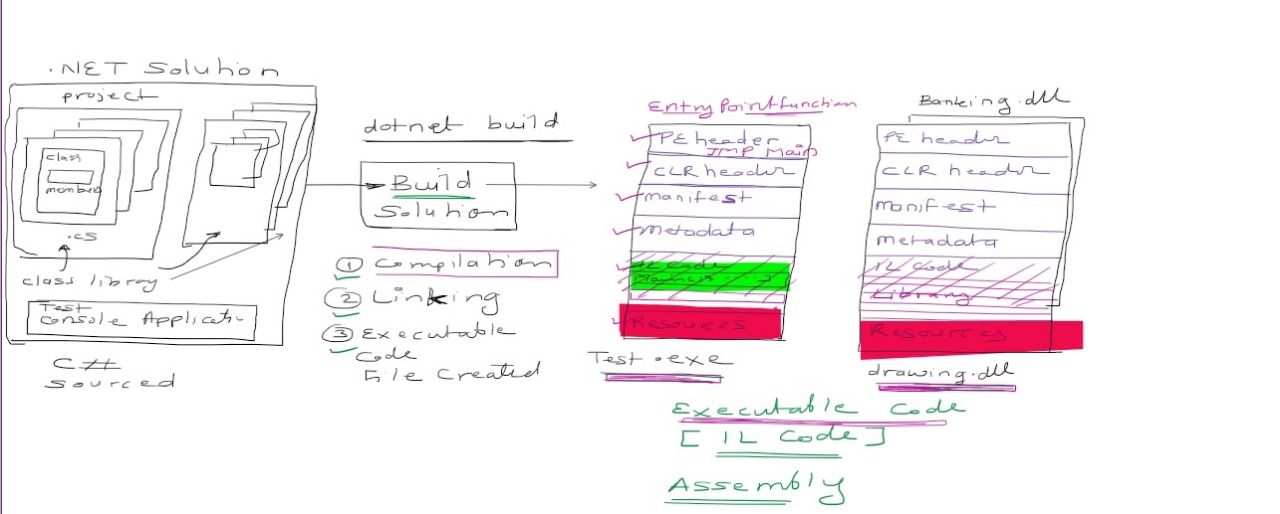 .NET Solution
project
class
members
.cs
class library
Test
Console Applicatn
C#
Sourced
dotnet build
Build
Solution
① Compilation
② Linking
③ Executable
Code
File Created
Entry Point function
PE header
JMP Main
CLR header
manifest
metadata
IL Code
Resources
Test.exe
Banking.dll
PE header
CLR header
manifest
metadata
IL Code
Library
Resources
drawing.dll
Executable Code
[IL Code]
Assembly